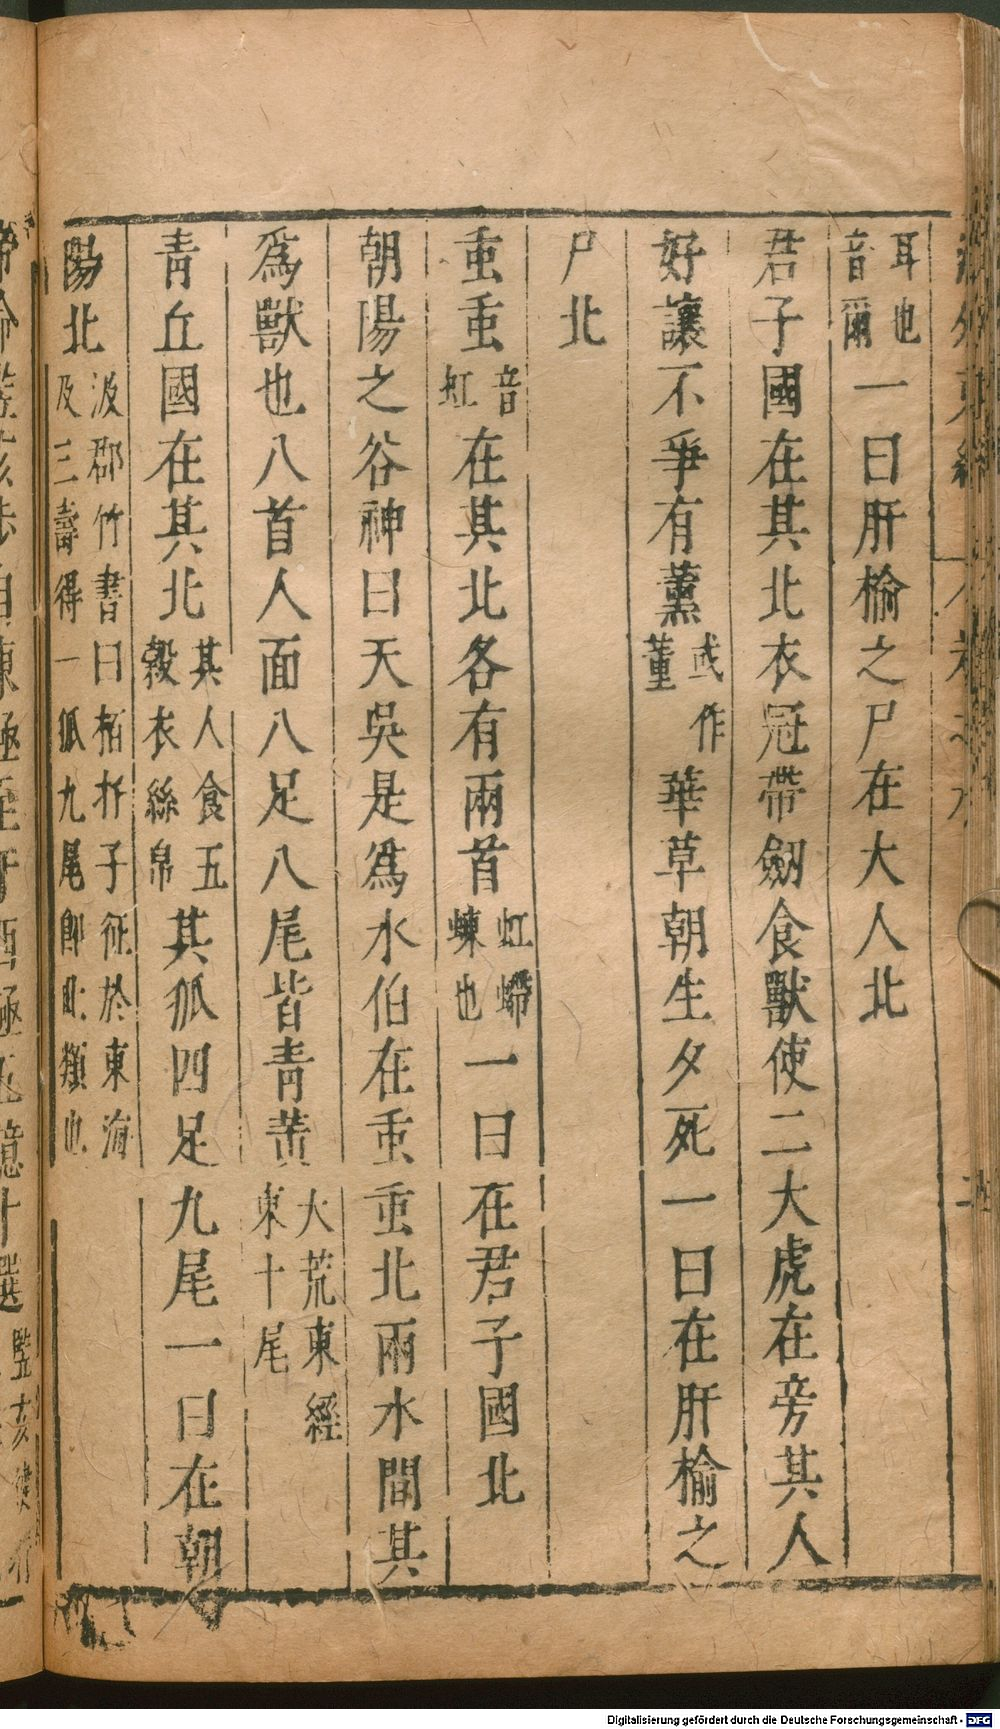 耳也音爾一曰肝榆之尸在大人北
君子國在其北衣冠帶劒食獸使二大虎在旁其人
好讓不爭有薰或作菫華草朝生夕死一曰在肝榆之
尸北
䖝䖝音虹在其北各有兩首虹螮蝀也一曰在君子國北
朝陽之谷神曰天吳是爲水伯在䖝䖝北兩水間其
爲獸也八首人面八足八尾皆青黃大荒東經東十尾
青丘國在其北其人食五穀衣絲帛其狐四足九尾一曰在朝
陽北汲郡竹書曰栢杼子征於東海及三壽得一狐九尾即此類也
Digitalisierung gefördert durch die Deutsche Forschungsgemeinschaft - DFG